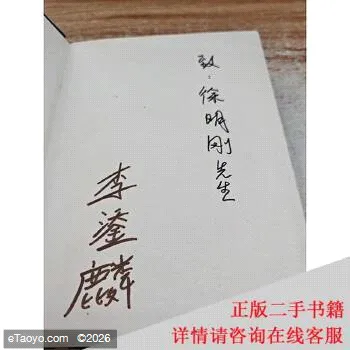 致：徐明刚先生
李鎏麟
正版二手书籍
详情请咨询在线客服
eTaoyo.com ©2026